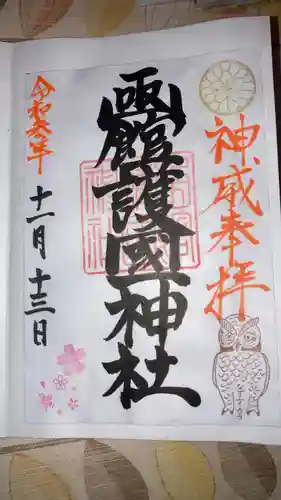 神威奉拝
函館護國神社
令和六年
十一月十三日